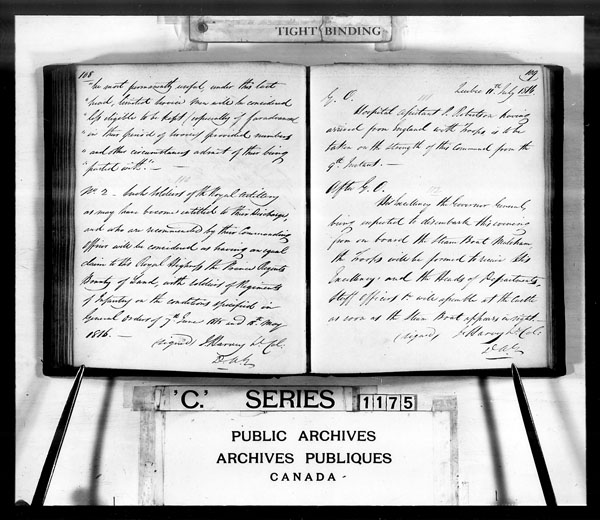 TIGHT BINDING
108
"be most permanently useful, under this last
"head, limited service men will be considered
"less eligible to be kept, especially if far advanced
"in this period of service, provided numbers
"and other circumstances admit of their being
"parted with." —
No. 2 - Such Soldiers of the Royal Artillery
as may have become entitled to their Discharge,
and who are recommended by their Commanding
officer will be considered as having an equal
claim to His Royal Highness the Prince Regents
Bounty of Land, with Soldiers of Regiments
of Infantry on the conditions specified in
General Orders of 7th June 1815 and May
1816. —
(signed) J. Harvey Lt. Col.
D.A.G.
109
Quebec 11th July 1816
G. O.
Hospital Assistant P. Robertson having
arrived from England with Troops is to be
taken on the strength of this Command from the
9th Instant. —
After G. O.
His Excellency the Governor General,
being expected to disembark this evening
from on board the Steam Boat Malsham
the Troops will be formed to receive His
Excellency: and the Heads of Departments,
Staff Officers &c will assemble at the Castle
as soon as the Steam Boat appears in sight.
(signed) J. Harvey Lt. Col.
D.A.G.
'C.' SERIES 1175
PUBLIC ARCHIVES
ARCHIVES PUBLIQUES
CANADA -